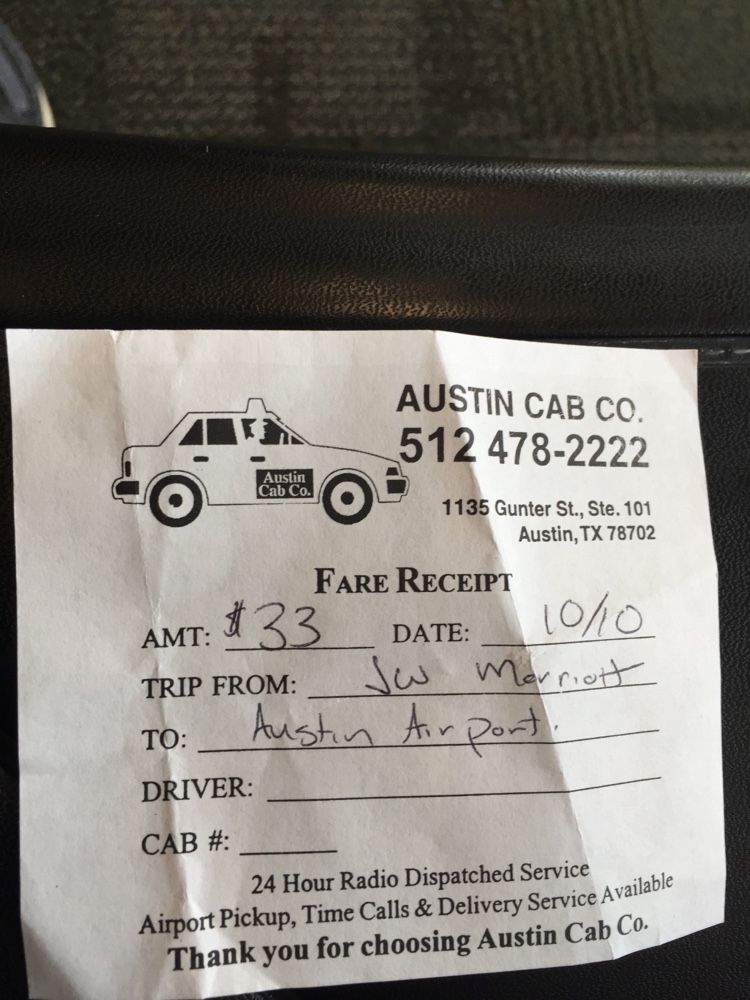 AUSTIN CAB CO.
512 478-2222
Austin
Cab Co.
1135 Gunter St., Ste. 101
Austin, TX 78702
FARE RECEIPT
AMT: $33 DATE: 10/10
TRIP FROM: JW Marriott
TO: Austin Airport.
DRIVER:
CAB #:
24 Hour Radio Dispatched Service
Airport Pickup, Time Calls & Delivery Service Available
Thank you for choosing Austin Cab Co.